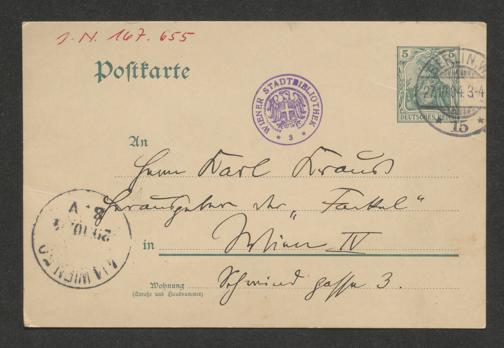 J. N. 167.655
Postkarte
5
BERLIN, W.
3-4
15
DEUTSCHES
WIENER STADTBIBLIOTHEK
An
Herrn Karl Kraus
Herausgeber der „Fackel"
in Wien IV
Schwindgasse 3.
Wohnung
(Straße und Hausnummer)
4/1 WIEN 50
29.10.
8. V